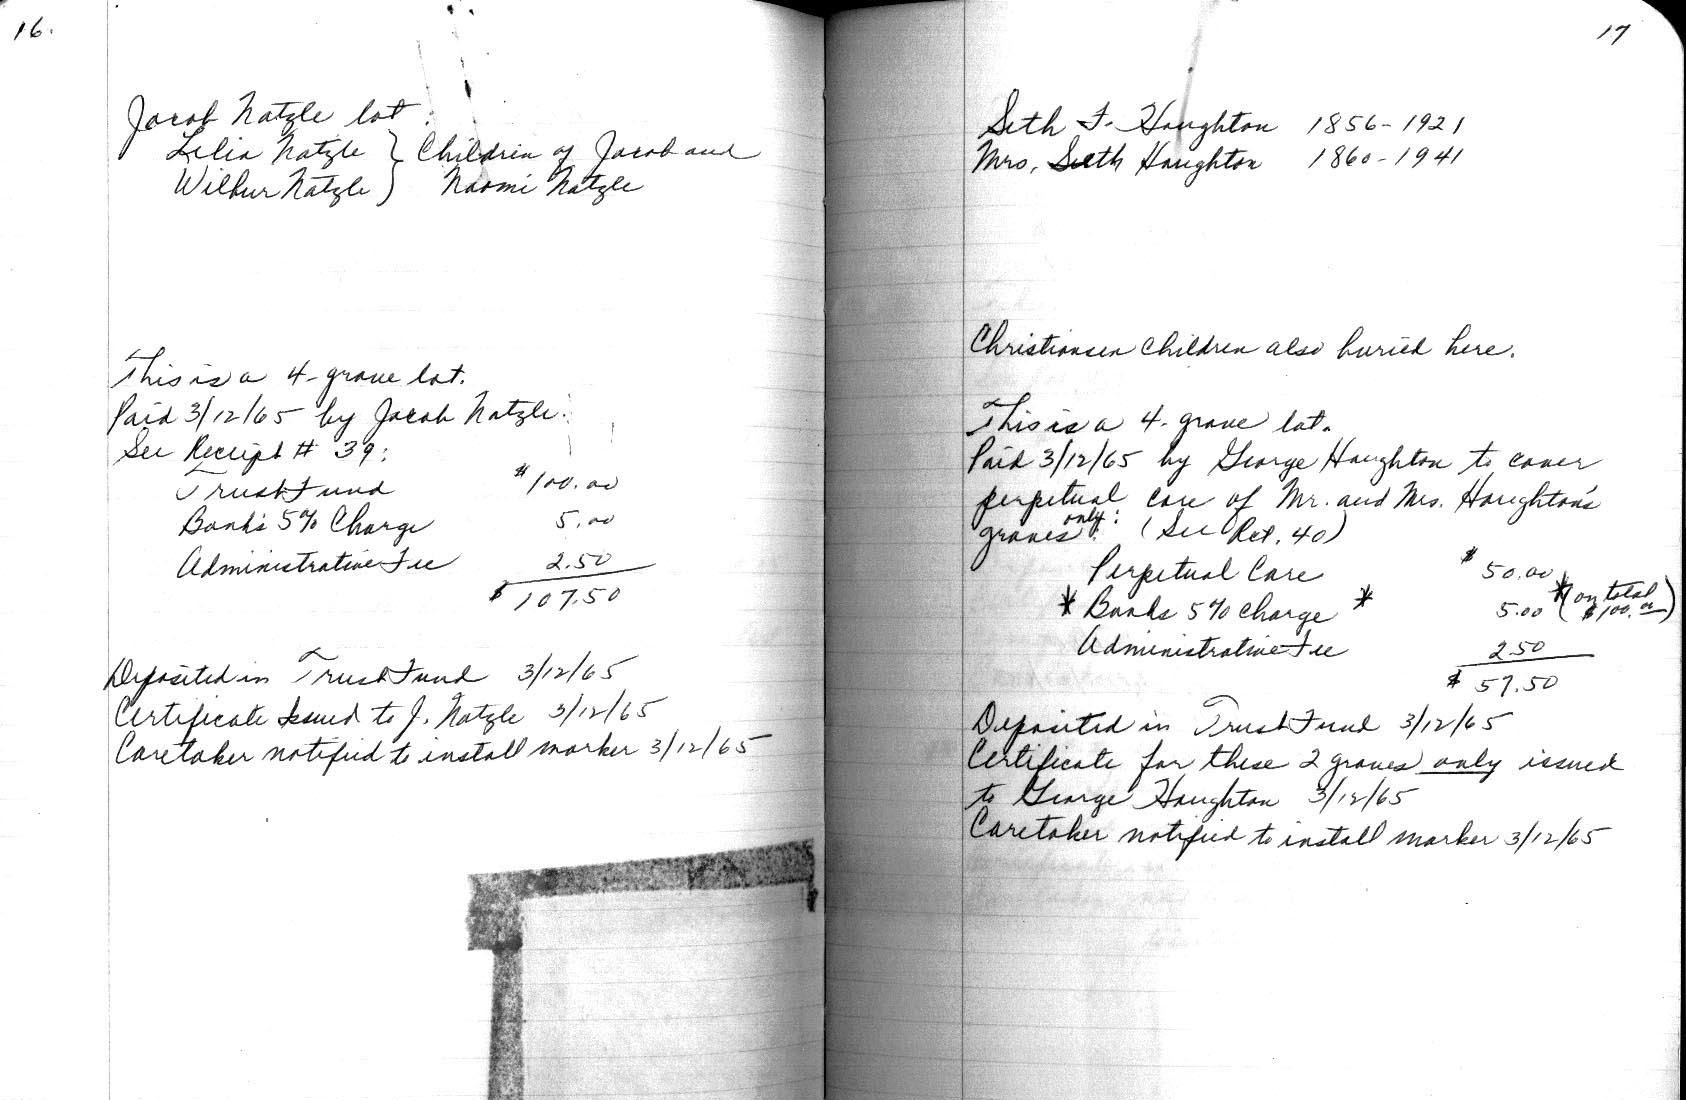 16.
Jacob Natzle lot.
Lelia Natzle } Children of Jacob and
Wilbur Natzle } Naomi Natzle
This is a 4-grave lot.
Paid 3/12/65 by Jacob Natzle.
See Receipt # 39:
Trust Fund $100.00
Bank's 5% Charge 5.00
Administrative Fee 2.50
$ 107.50
Deposited in Trust Fund 3/12/65
Certificate Issued to J. Natzle 3/12/65
Caretaker notified to install marker 3/12/65
17
Seth F. Houghton 1856-1921
Mrs. Seth Houghton 1860-1941
Christiansen Children also buried here.
This is a 4-grave lot.
Paid 3/12/65 by George Houghton to cover
perpetual care of Mr. and Mrs. Houghton's
graves only: (See Rct. 40)
Perpetual Care $ 50.00
* Banks 5% Charge * 5.00 * (on total $100.00)
Administrative Fee 2.50
$ 57.50
Deposited in Trust Fund 3/12/65
Certificate for these 2 graves only issued
to George Houghton 3/12/65
Caretaker notified to install marker 3/12/65